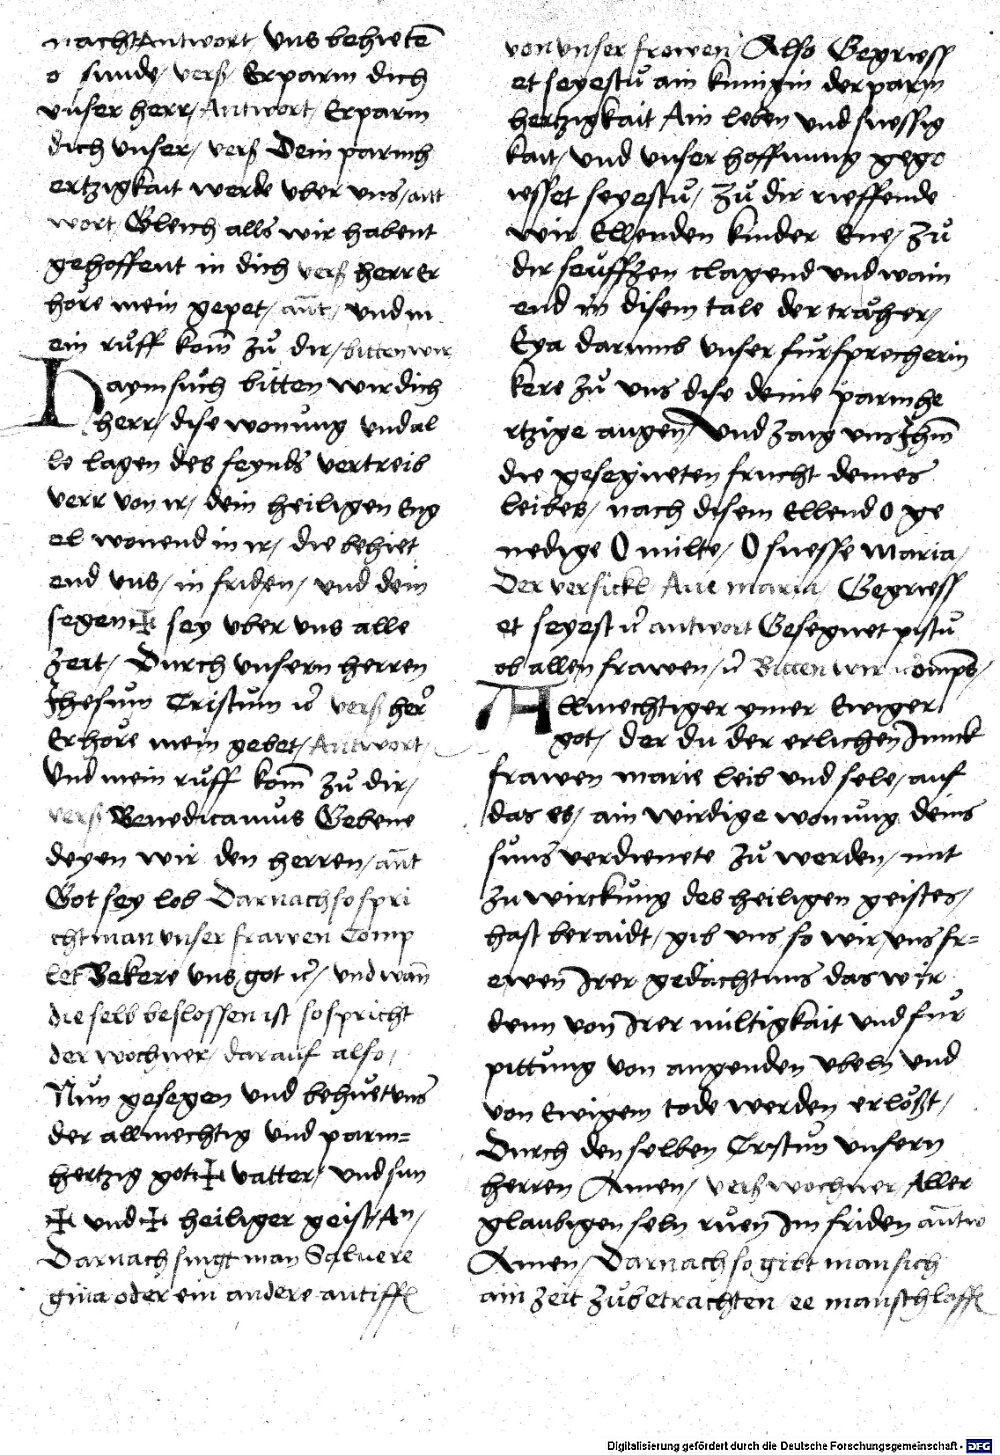 nacht Antwort, Vns behieten̄
o sunde, vers̄, Erparm dich
vnser herr, Antwort, Erparm
dich vnser, vers̄ Dein parmh
ertzigkait werde vber vns, ant
wort, Gleich alls wir habent
gehoffent in dich vers̄ herr Er
höre mein gepet, ant̄, vnd m
ein růff kom̄ zů dir, bitten wir
Haymsůch bitten wir dich
herr, dise wonŭng vnd al
le lagen des feynds vertreib
verr von ir, dein heiligen Eng
el wonend in ir, die behiet
end vns, in friden, vnd dein
segen ✠ sey vber vns alle
zeit, Durch vnsern herren
Jhesum Cristum vers̄ her
Erhöre mein gebet, Antwort
Vnd mein rŭff kom̄ zů dir,
vers̄ Benedicamŭs Gebene
deyen wir den herren, ant̄
Got sey lob Darnach so spri
cht man vnser frawen Comp
let Bekere vns got, vnd wan̄
die selb beslossen ist so spricht
der wochner, darauf also,
Nŭn gesegen vnd behŭet vns
der allmechtig vnd parm=
hertzig got ✠ vatter, vnd sun
✠ vnd ✠ heiliger geist, An̄,
Darnach singt man Salue re
gina oder ein andere antiff
von vnser frowen, Also Gegriess
et seyestŭ ain kunigin der parm
hertzigkait Ain leben vnd suessig
kait, vnd vnser hoffnung gegr
iesset seyestŭ, zů dir rieffende
wir Ellenden kinder Eue, zů
dir seŭfftzen clagend vnd wain
end in disem tale der träher,
Eya darumb vnser fursprecherin
kere zů vns dise deine parmhe
rtzige augen, Vnd zaig vns Jhm̄
die gesegneten frucht deines
leibes, nach disem Ellend O ge
nedige O milte, O suesse Maria,
Der versickl Aue maria, Gegriess
et seyest antwort Gesegnet pistŭ
ob allen frawen, Bitten wir comps̄,
Allmechtiger ymer Ewiger
got, der du der erlichen Junck
frawen marie leib vnd sele, auf
das es, ain wirdige wonŭng deins
suns verdienete zů werden, mit
zu wirckŭng des heiligen geistes,
hast beraidt, gib vns so wir vns fr=
ewen Irer gedächtnus das wir
denn von Irer miltigkait vnd fŭr
pittŭng von angenden vbeln vnd
von Ewigem tode werden erlößt,
Durch den selben Cristŭm vnsern
herren Amen, vers̄ wochner, Aller
glaubigen seln rŭen Im friden antw
Amen, Darnach so gibt man sich
ain zeit zŭbetrachten ee man schlaff
Digitalisierung gefördert durch die Deutsche Forschungsgemeinschaft - DFG